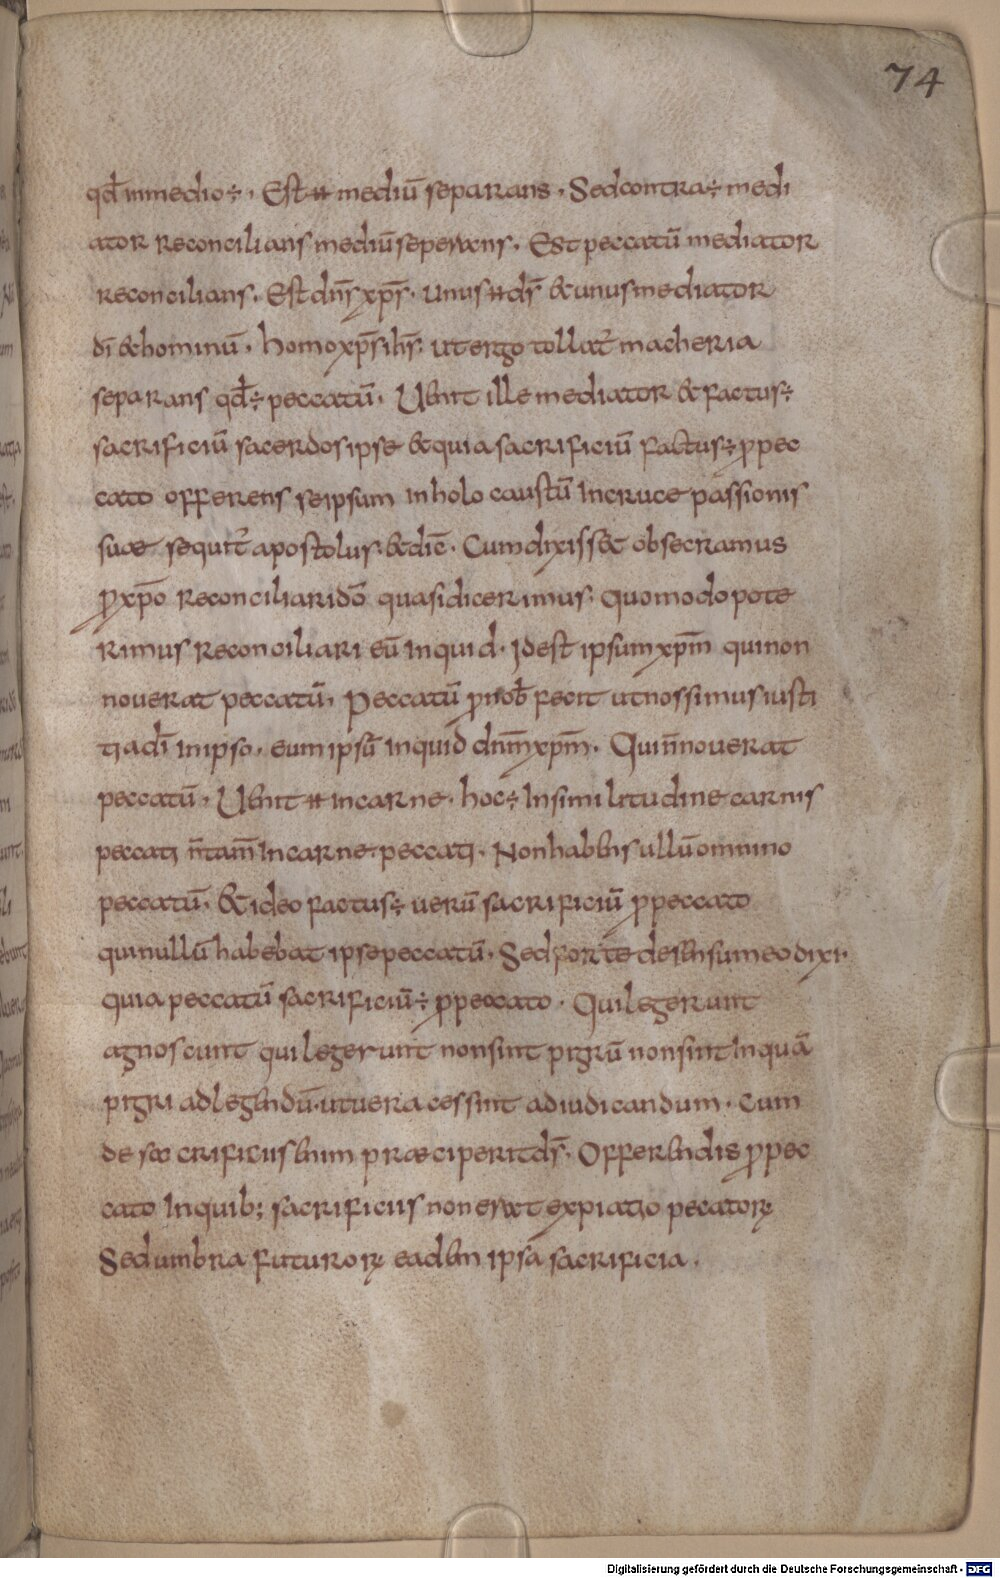 74
qd̄ inmedio ÷ · Est ꝵ mediū separans · Sed contra ÷ medi
ator reconcilians mediū seperans · Est peccatū mediator
reconcilians · Est dn̄s xp̄s · unus ꝵ ds̄ & unus mediator
dī & hominū · homo xp̄s ih̄s · ut ergo tollat̄ macheria
separans qd̄ ÷ peccatū · Uenit ille mediator & factus ÷
sacrificiū sacerdos ipse & quia sacrificiū factus ÷ ꝓ pec
cato offerens seipsum in holocaustū In cruce passionis
suae sequit̄ apostolus · & dic̄ · Cum dixiss& obsecramus
ꝓ xp̄o reconciliari dō quasi dicerimus · Quomodo pote
rimus reconciliari eū Inquid · Idest ipsum xp̄m qui non
nouerat peccatū · Peccatū ꝓ nob̄ fecit ut nos simus iusti
tia dī in ipso · eum ipsū Inquid dn̄m xp̄m · Qui n̄ nouerat
peccatū · Uenit ꝵ in carne · hoc ÷ In similitudine carnis
peccati n̄ tam̄ In carne peccati · Non habens ullū omnino
peccatū · & ideo factus ÷ uerū sacrificiū ꝓ peccato
qui nullū habebat ipse peccatū · Sed forte de sensu meo dixi ·
quia peccatū sacrificiū ÷ ꝓ peccato · Qui legerunt
agnoscunt qui legerunt non sint pigrū non sint Inquā
pigri ad legendū · ut uera cessint ad iudicandum · Cum
de sacrificiis enim praeciperit ds̄ · Offerendis ꝓ pec
cato Inquib; sacrificiis non erat expiatio pecatorꝝ
Sed umbra futurorꝝ eadem ipsa sacrificia ·
Digitalisierung gefördert durch die Deutsche Forschungsgemeinschaft - DFG